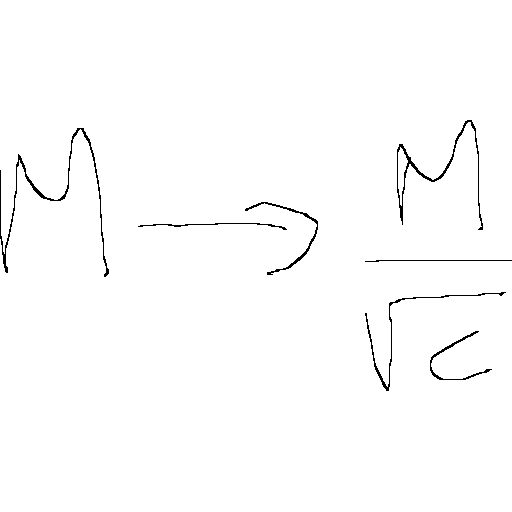 M → \frac{M}{\sqrt{c}}